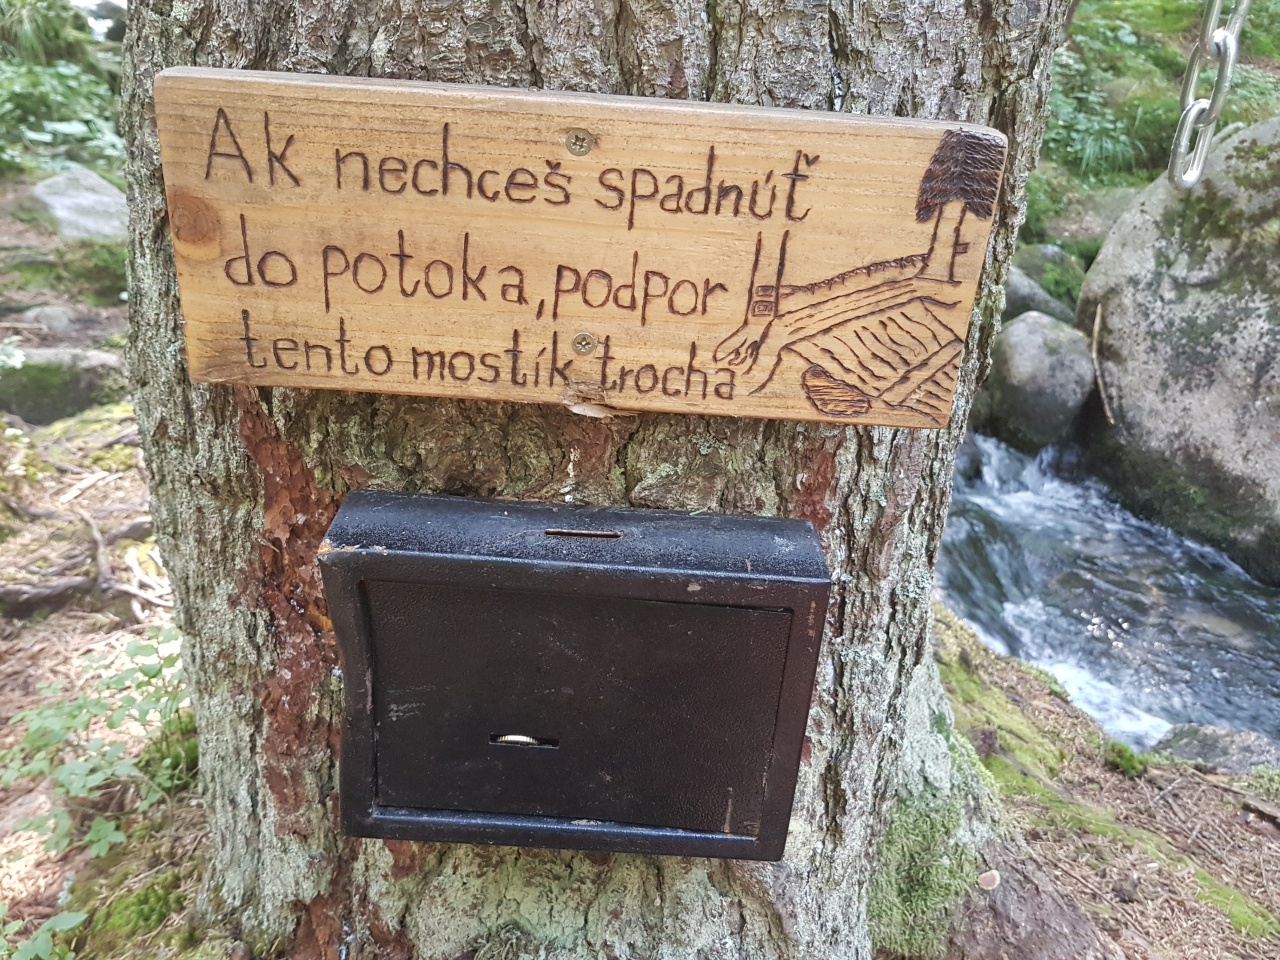 Ak nechceš spadnúť
do potoka, podpor
tento mostík trocha